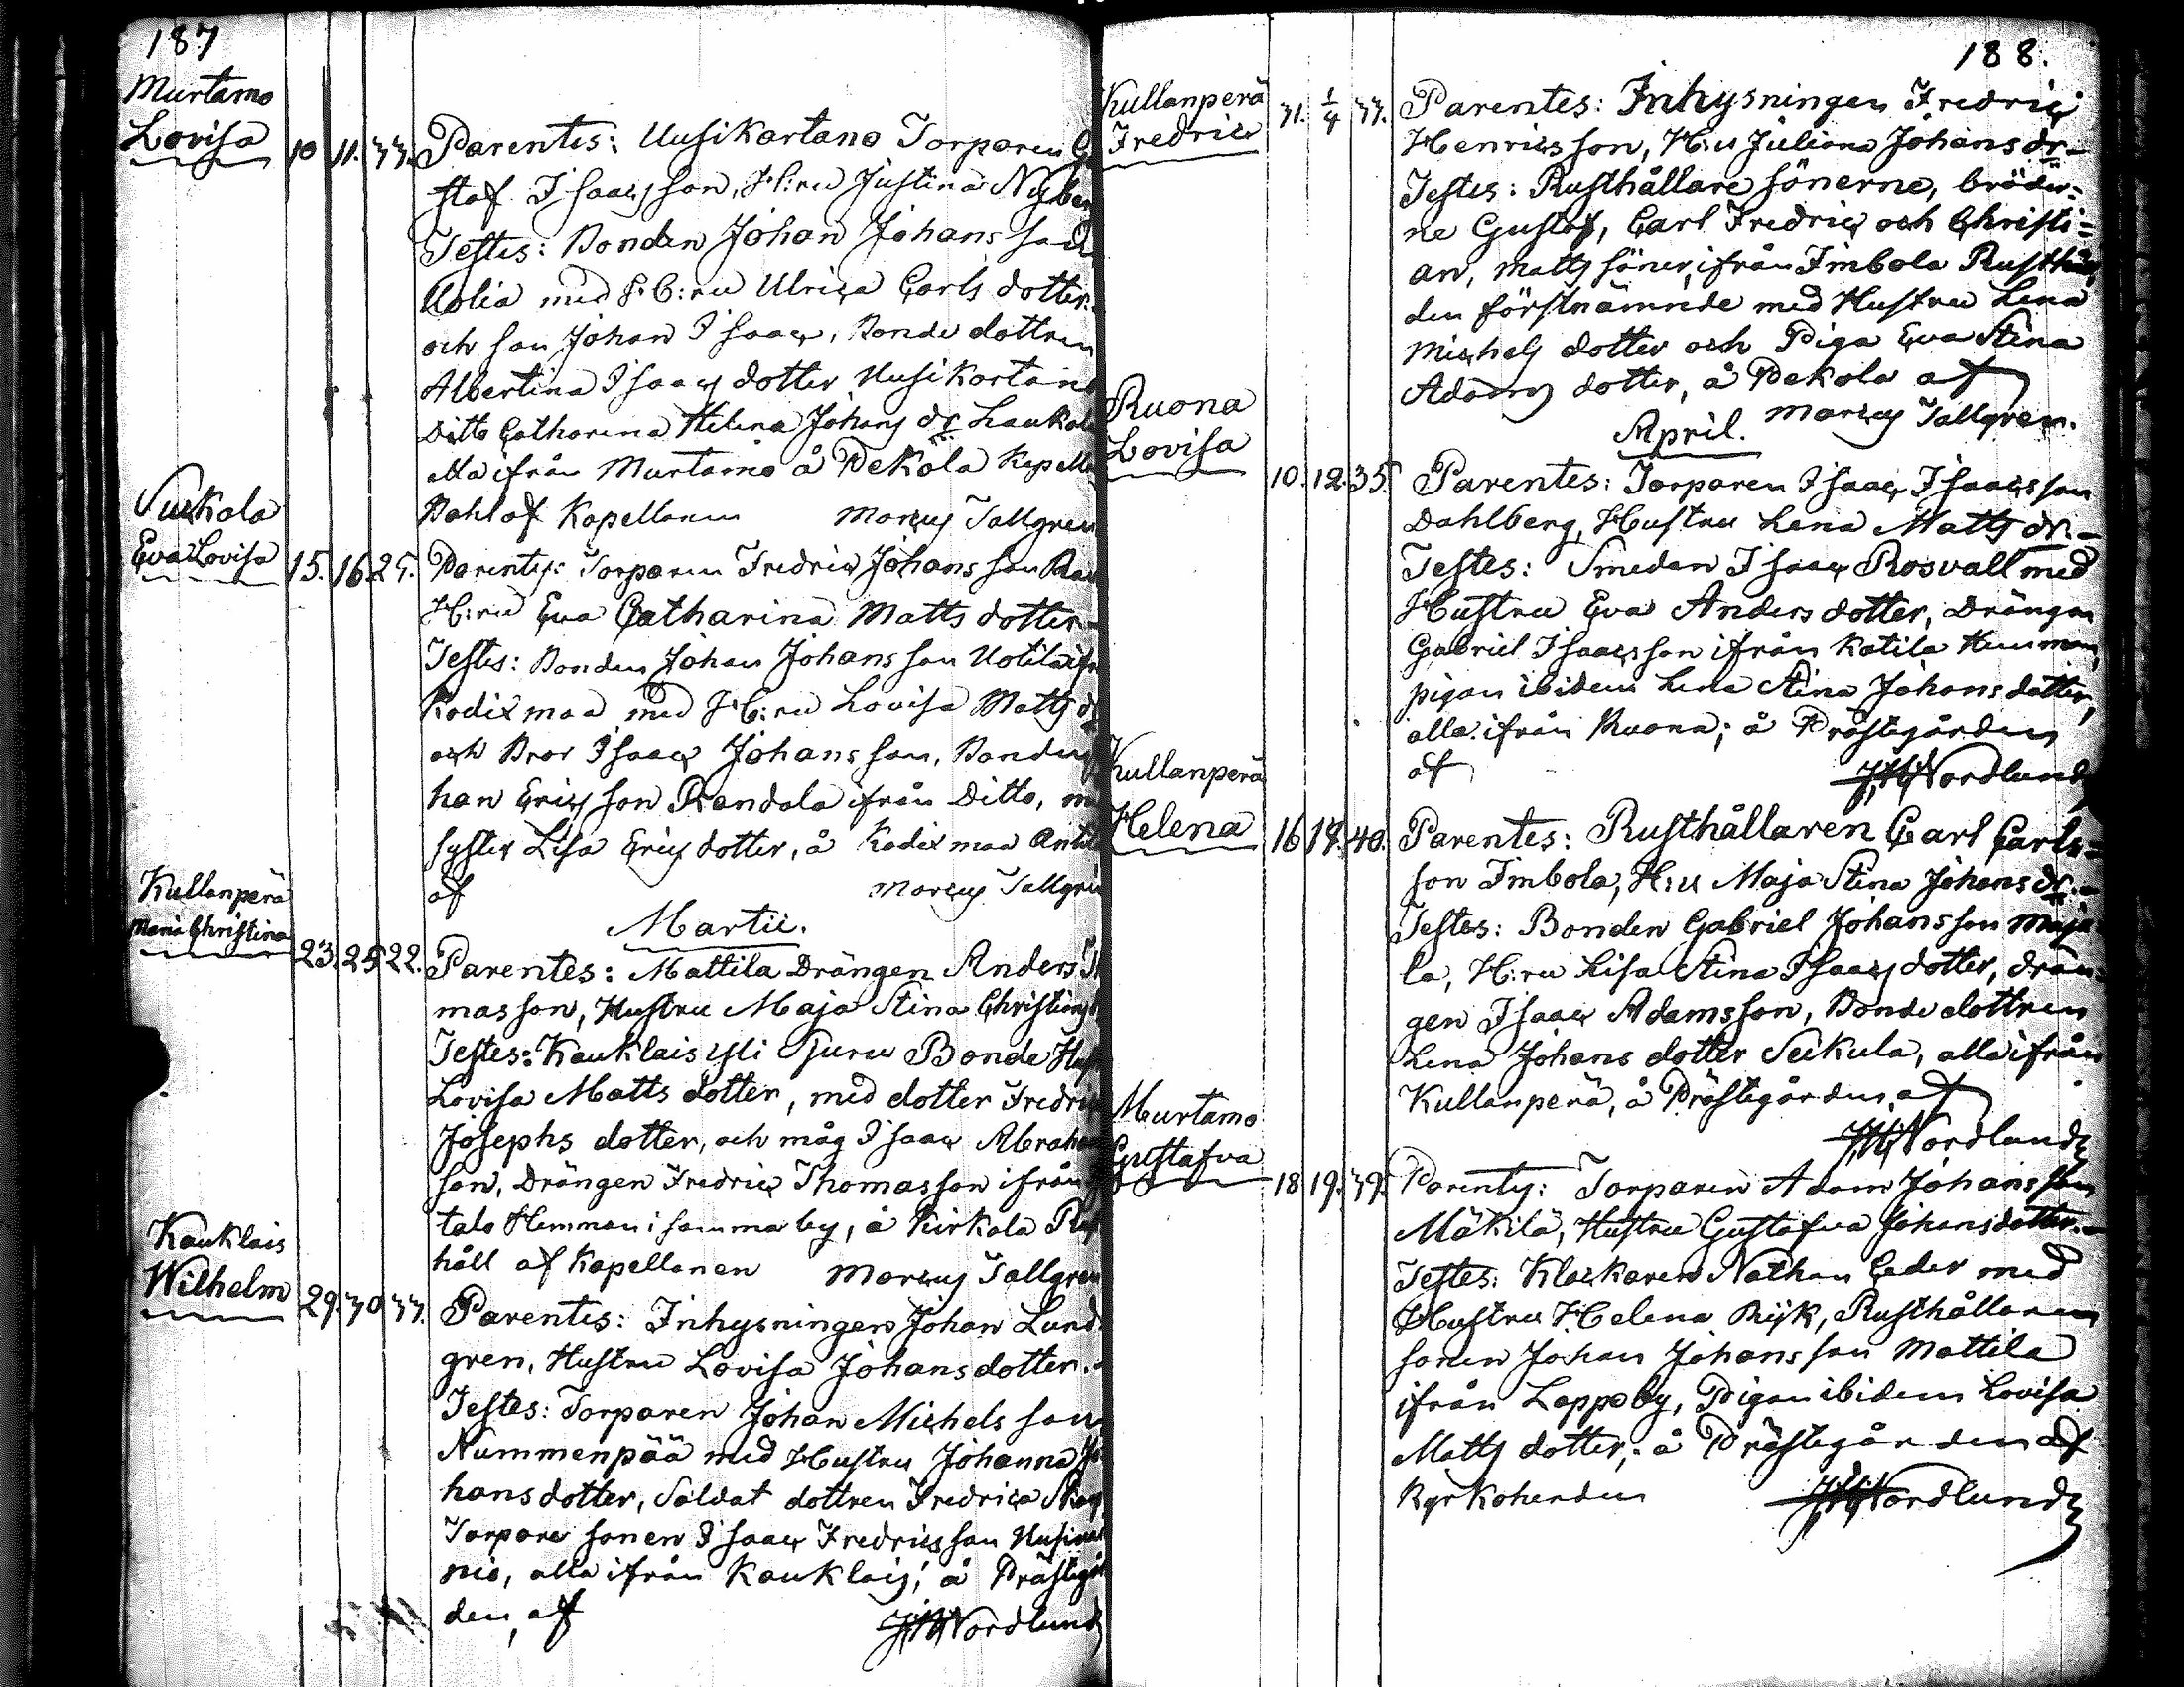 187
Murtamo
Lovisa 10 11. 33. Parentes: Uusikartano Torparen G
staf Isaacsson, H:ru Justina Nyber
Testes: Bonden Johan Johansson
Uolia med H:ru Ulrica Carlsdotter
och son Johan Isaac, Bonde dottren
Albertina Isaacs dotter Uusikartano
Ditto Catharina Helena Johans dr Laukola
alla ifrån Murtamo å Pekola Kapella
Bohl af Kapellanen Marcus Tallgren
Suckola
Eva Lovisa 15. 16. 25. Parentes: Torparen Fredric Johansson
H:ru Eva Catharina Matts dotter
Testes: Bonden Johan Johansson Uotila ifr
Kodixmaa med H:ru Lovisa Matts d
och Bror Isaac Johansson, Bonden
han Ericsson Prandala ifrån Ditto, m
syster Lisa Erics dotter, å Kodixmaa Antil
af Marcus Tallgren
Martii.
Kullanperä
Maria Christina 23. 25 22. Parentes: Mattila Drängen Anders T
masson, Hustru Maja Stina Christians
Testes: Kauklais Yli Juru Bonde Hu
Lovisa Matts dotter, med dotter Fredri
Josephs dotter, och måg Isaac Abraham
son, Drängen Fredric Thomasson ifrån
talo Hemman i samma by, å Kirkola Rus
håll af Kapellanen Marcus Tallgren
Kauklais
Wilhelm 29. 30 33. Parentes: Inhysningen Johan Lund
gren, Hustru Lovisa Johansdotter.
Testes: Torparen Johan Michelsson
Nummenpää med Hustru Johanna Jo
hansdotter, Soldat dottren Fredrica Skog
Torpare sonen Isaac Fredricsson
nio, alla ifrån Kauklais; å Prästegår
den, af JM Nordlund
188.
Kullanperä
Fredric 31. 1/4 33. Parentes: Inhysningen Fredric
Henricsson, H:u Juliana Johansdr-
Testes: Rusthållare sönerne, bröder=
ne Gustaf, Carl Fredric och Christi=
an, Matts söner, ifrån Imbola Rusthåll,
den förstnämnde med Hustru Lena
Michels dotter och Piga Eva Stina
Adams dotter, å Pekola af
Marcus Tallgren.
April.
Ruona
Lovisa 10. 12. 35. Parentes: Torparen Isaac Isaacsson
Dahlberg, Hustru Lena Matts dr.-
Testes: Smeden Isaac Rosvall med
Hustru Eva Andersdotter, Drängen
Gabriel Isaacsson ifrån Katila Hemman,
pigan ibidem Lena Stina Johansdotter,
alla ifrån Ruona; å Prästegården
af JM Nordlund
Kullanperä
Helena 16 18. 40. Parentes: Rusthållaren Carl Carls=
son Imbola, H:u Maja Stina Johansdr.-
Testes: Bonden Gabriel Johansson Maja
la, H:ru Lisa Stina Isaacs dotter, Drän=
gen Isaac Adamsson, Bonde dottren
Lena Johans dotter Seikula, alla ifrån
Kullanperä, å Prästegården, af
JM Nordlund
Murtamo
Gustafva 18 19. 39. Parentes: Torparen Adam Johansson
Mäkilä, Hustru Gustafva Johansdotter.-
Testes: Klockaren Nathan Ceder med
Hustru Helena Ryk, Rusthållaren
sonen Johan Johansson Mattila
ifrån Lappeby, Pigan ibidem Lovisa
Matts dotter; å Prästegården af
Kyrkoherden JM Nordlund